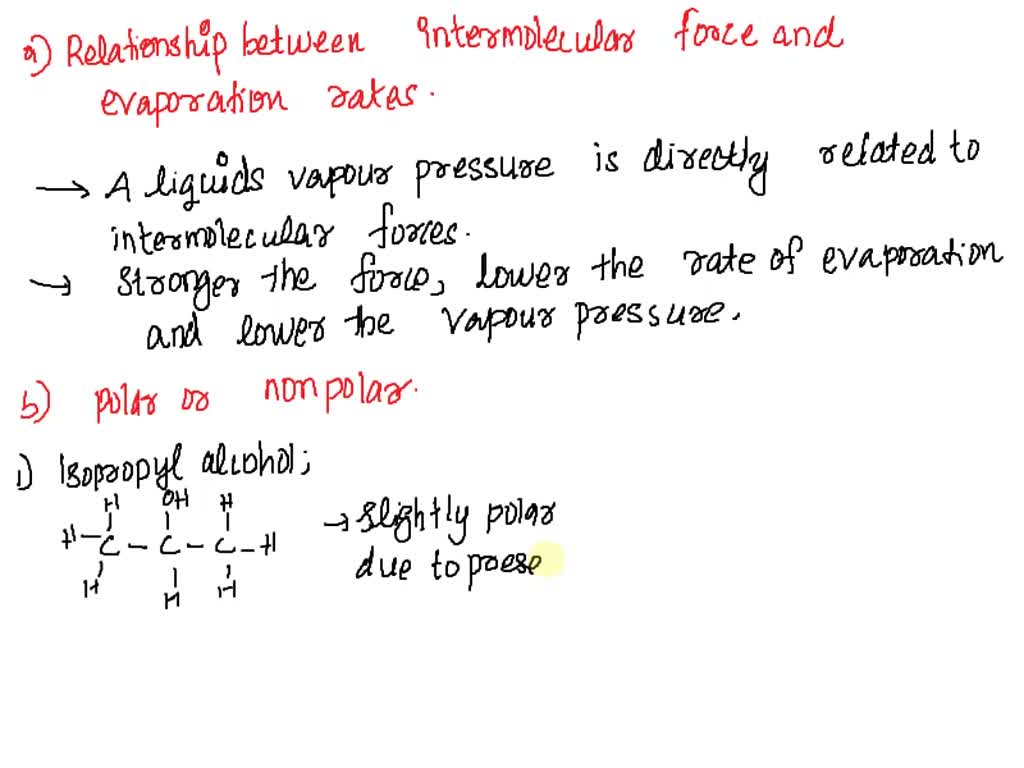 a) Relationship between intermolecular force and
evaporation rates.
→ A liquids vapour pressure is directly related to
intermolecular forces.
→ Stronger the force, lower the rate of evaporation
and lower the vapour pressure.
b) polar or nonpolar.
1) Isopropyl alcohol;
H OH H
H-C-C-C-H
H H H
→ slightly polar
due to prese